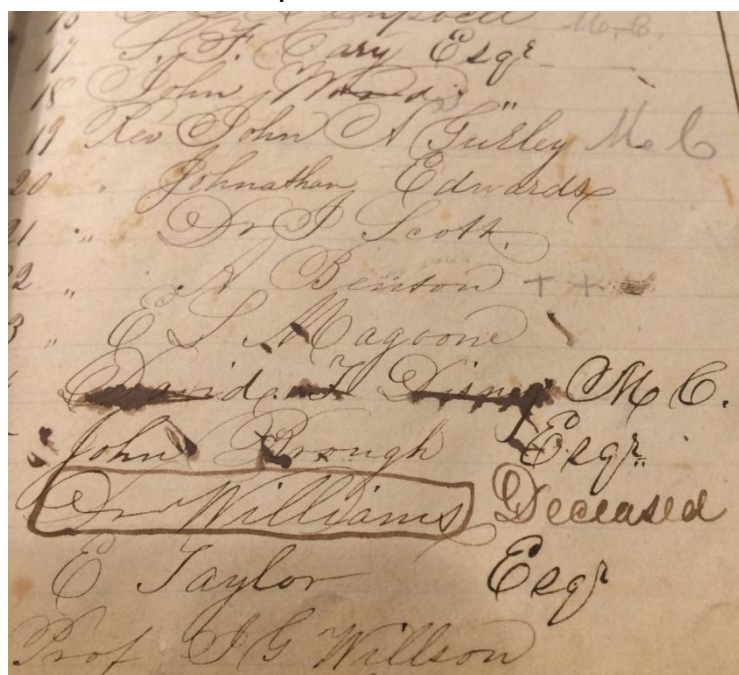 16 Campbell M.C.
17 S. F. Cary Esqr
18 John Wood
19 Rev John A Gurley M. C
20 " Johnathan Edwards
21 " Dr J Scott
22 " A Benton + +
3 " E L Magoone
David T Disney M C.
John Brough Esqr.
Dr Williams Deceased
E Taylor Esqr
Prof J G Willson